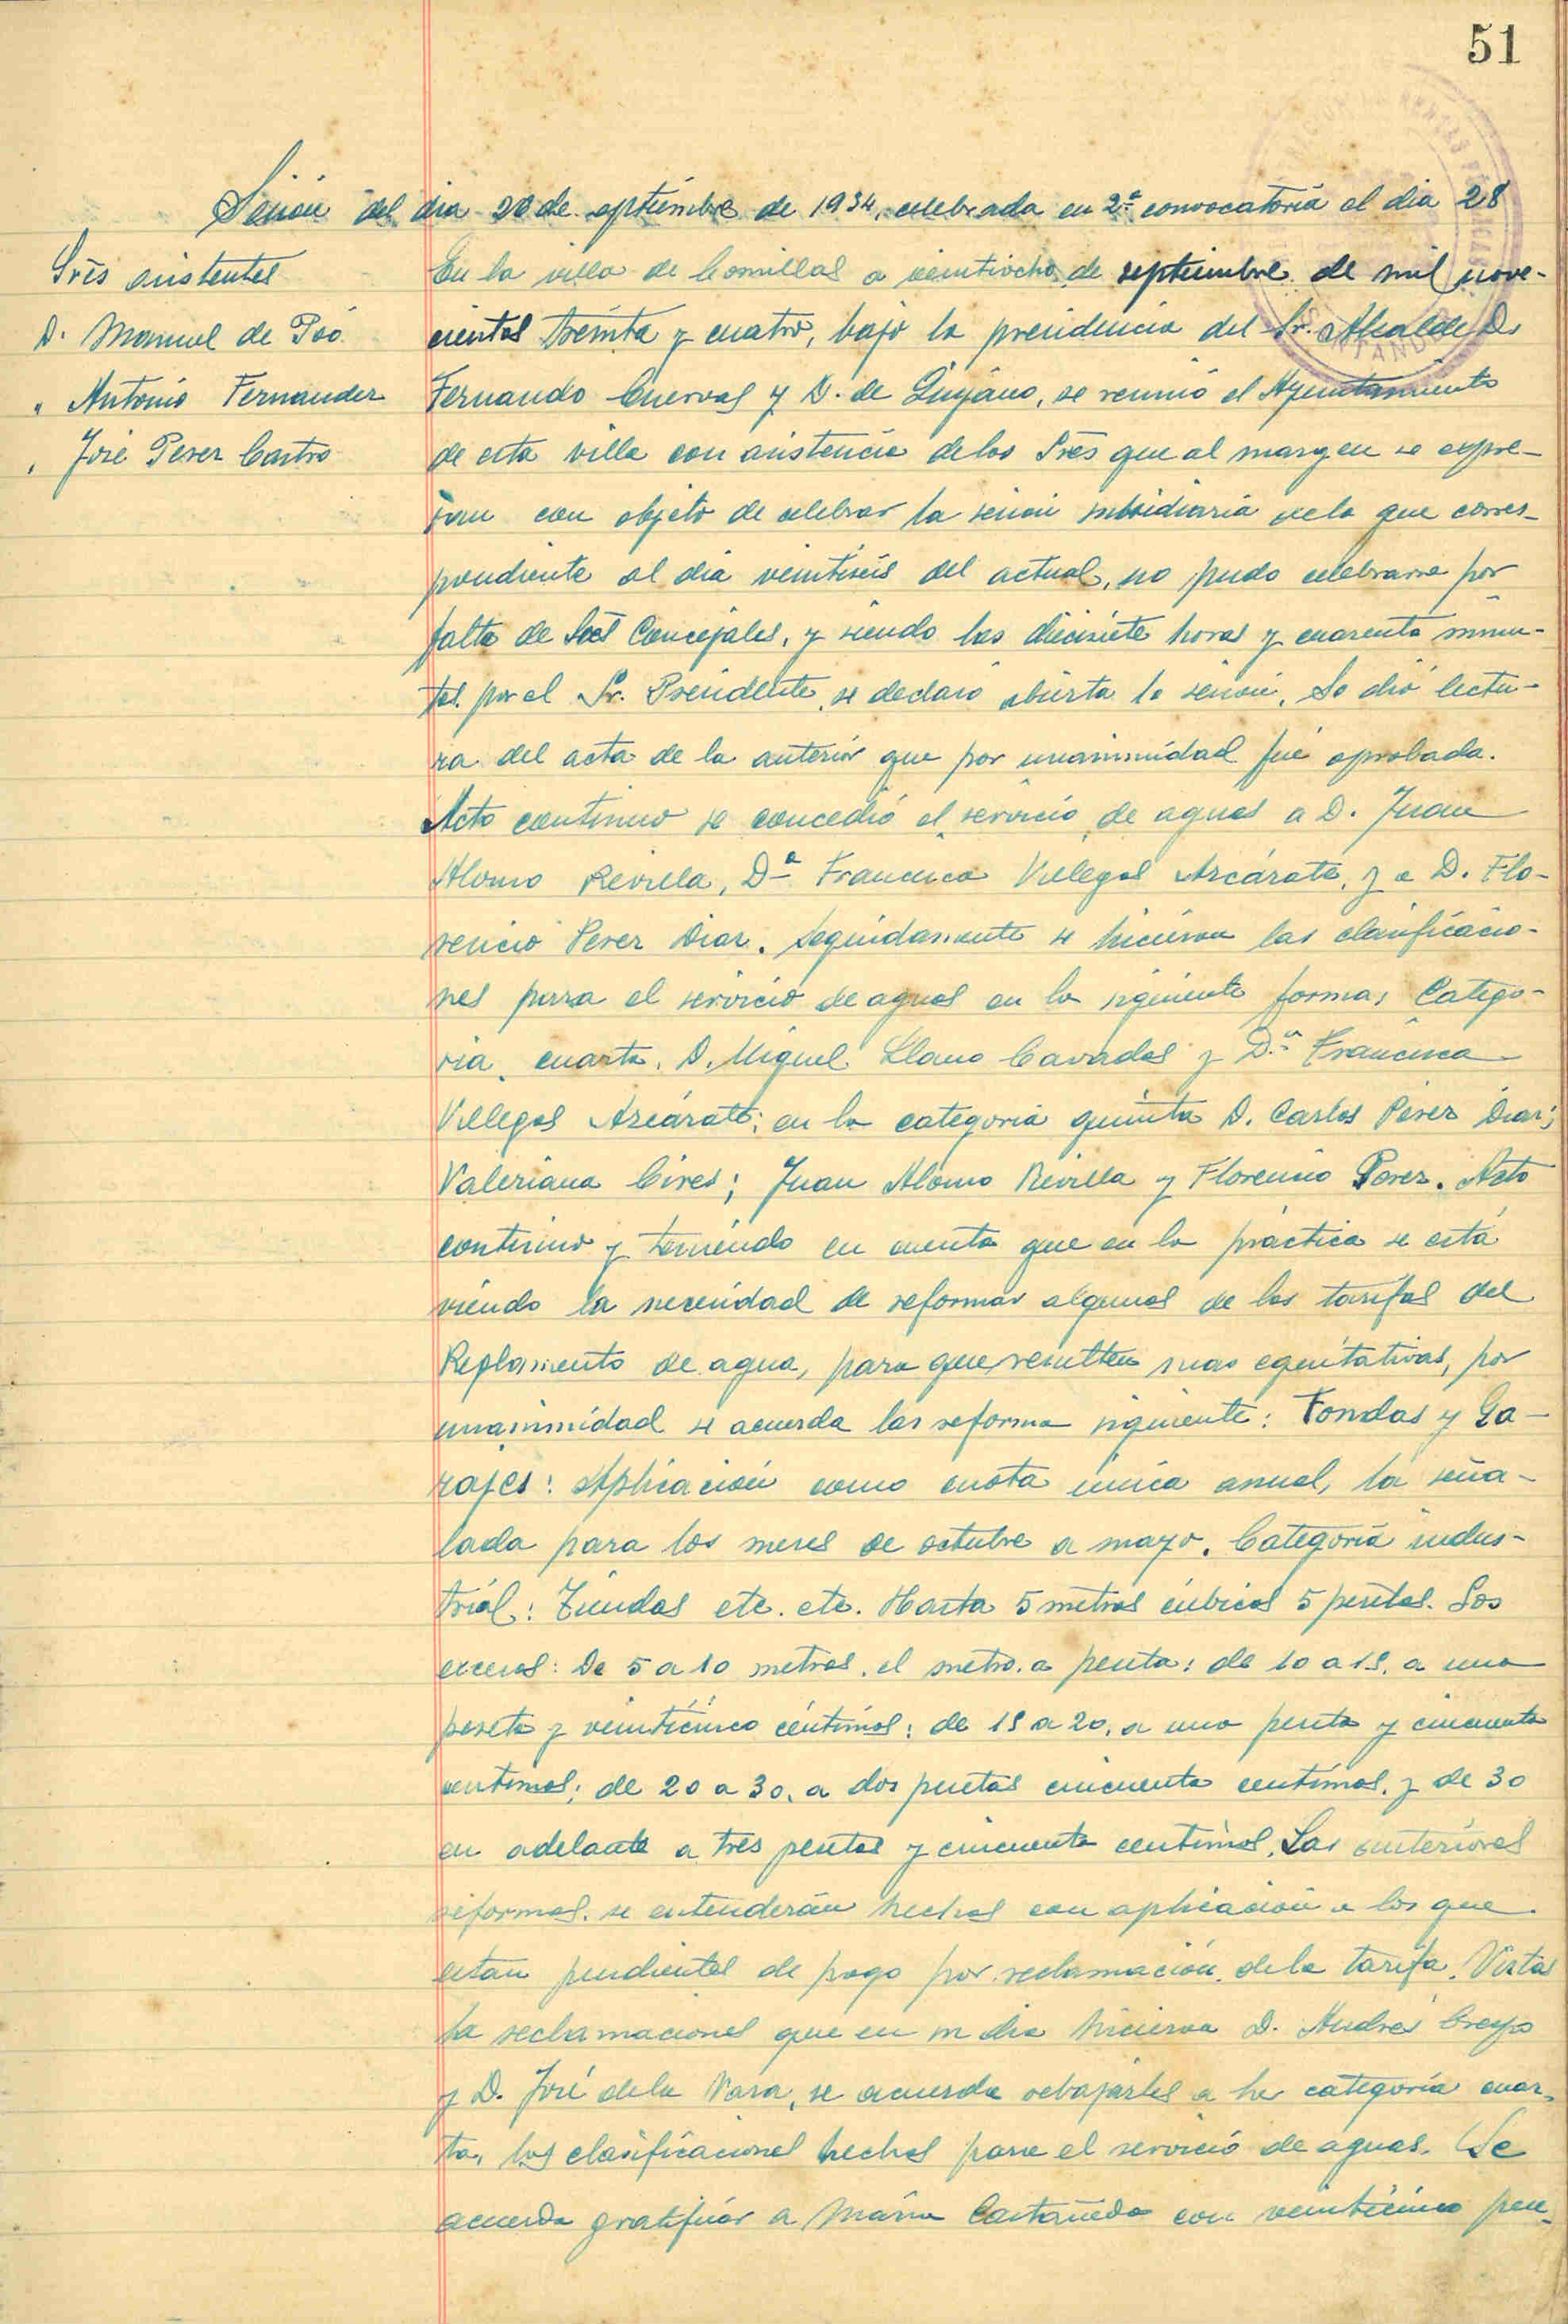 51
Sesión del dia 26 de septiembre de 1934, celebrada en 2ª convocatoria el dia 28
Srēs asistentes
D. Manuel de Poó
" Antonio Fernandez
" José Perez Castro
En la villa de Comillas a veintiocho de septiembre de mil nove-
cientos treinta y cuatro, bajo la presidencia del Sr. Alcalde D.
Fernando Cuervas y D. de Quijano, se reunió el Ayuntamiento
de esta villa con asistencia de los Srēs que al margen se expre-
san con objeto de celebrar la sesión subsidiaria de la que corres-
pondiente al dia veintiseis del actual, no pudo celebrarse por
falta de Srēs Concejales, y siendo las diecisiete horas y cuarenta minu-
tos por el Sr. Presidente, se declaró abierta la sesión. Se dió lectu-
ra del acta de la anterior que por unanimidad fué aprobada.
Acto continuo se concedió el servicio de aguas a D. Juan
Alonso Revilla, Dª Francisca Villegas Azcárate, y a D. Flo-
rencio Perez Diaz. Seguidamente se hicieron las clasificacio-
nes para el servicio de aguas en la siguiente forma; Catego-
ria cuarta. D. Miguel Llano Cavadas y D.ª Francisca
Villegas Azcárate; en la categoria quinta D. Carlos Pérez Diaz;
Valeriana Cires; Juan Alonso Revilla y Florencio Perez. Acto
continuo y teniendo en cuenta que en la práctica se está
viendo la necesidad de reformar algunas de las tarifas del
Reglamento de agua, para que resulten mas equitativas, por
unanimidad se acuerda las reforma siguiente: Fondas y Ga-
rajes: Aplicación como cuota única anual, la seña-
lada para los meses de octubre a mayo. Categoría indus-
trial: Tiendas etc. etc. Hasta 5 metros cúbicos 5 pesetas. Los
excesos: De 5 a 10 metros, el metro a peseta; de 10 a 15, a una
peseta y veinticinco céntimos; de 15 a 20, a una peseta y cincuenta
centimos; de 20 a 30, a dos pesetas cincuenta centimos, y de 30
en adelante a tres pesetas y cincuenta centimos. Las anteriores
reformas, se entenderán hechas con aplicación a los que
estan pendientes de pago por reclamación de la tarifa. Vistas
la reclamaciones que en su dia hicieron D. Andrés Crespo
y D. José de la Vara, se acuerda rebajarles a la categoría cuar-
ta, las clasificaciones hechas para el servicio de aguas. Se
acuerda gratificar a Maria Castañeda con veinticinco pese-